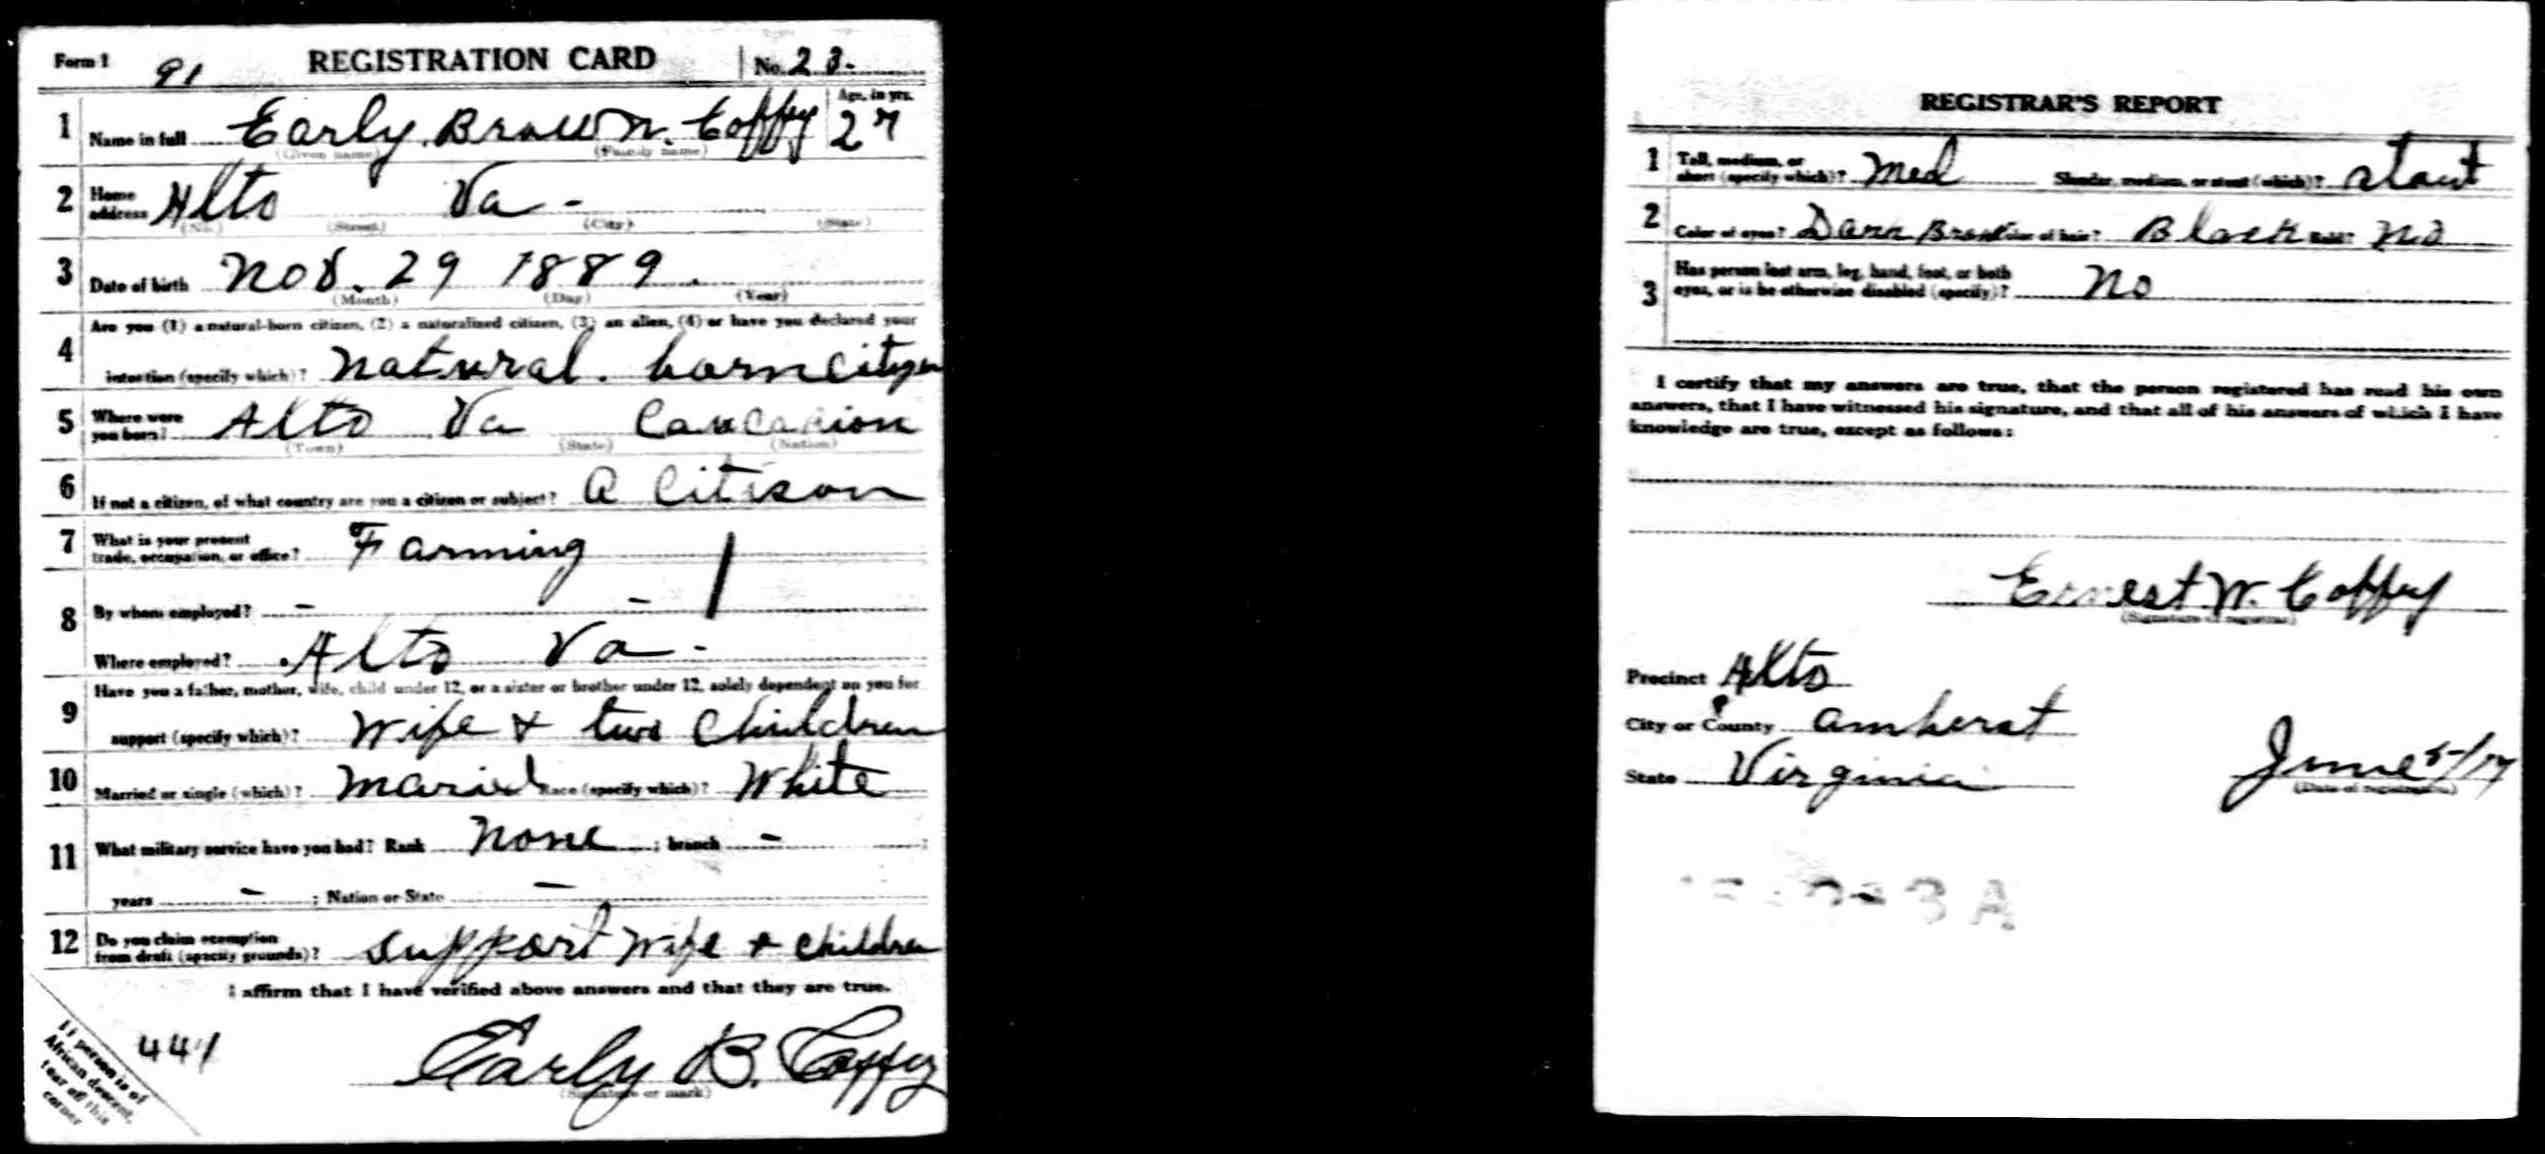 Form 1 91 REGISTRATION CARD No. 23.
1 Name in full Early Brown Coffey Age, in yrs. 27
(Given name) (Family name)
2 Home address Alto Va -
(No.) (Street) (City) (State)
3 Date of birth Nov. 29 1889
(Month) (Day) (Year)
Are you (1) a natural-born citizen, (2) a naturalized citizen, (3) an alien, (4) or have you declared your
4 intention (specify which)? natural born citizen
5 Where were you born? Alto Va Caucasion
(Town) (State) (Nation)
6 If not a citizen, of what country are you a citizen or subject? A Citison
7 What is your present trade, occupation, or office? Farming
8 By whom employed? - -
Where employed? Alto Va -
Have you a father, mother, wife, child under 12, or a sister or brother under 12, solely dependent on you for
9 support (specify which)? Wife + two Children
10 Married or single (which)? Maried Race (specify which)? White
11 What military service have you had? Rank None ; branch - ;
years - ; Nation or State -
12 Do you claim exemption from draft (specify grounds)? Support Wife + Children
I affirm that I have verified above answers and that they are true.
441
Early B. Coffey
(Signature or mark)
If person is of
African descent,
tear off this
corner
REGISTRAR'S REPORT
1 Tall, medium, or short (specify which)? Med Slender, medium, or stout (which)? Stout
2 Color of eyes? Dark Brown Color of hair? Black Bald? No
3 Has person lost arm, leg, hand, foot, or both eyes, or is he otherwise disabled (specify)? No
I certify that my answers are true, that the person registered has read his own
answers, that I have witnessed his signature, and that all of his answers of which I have
knowledge are true, except as follows:
Ernest W. Coffey
(Signature of registrar)
Precinct Alto
City or County Amherst
State Virginia June 5/17
(Date of registration)
3 A